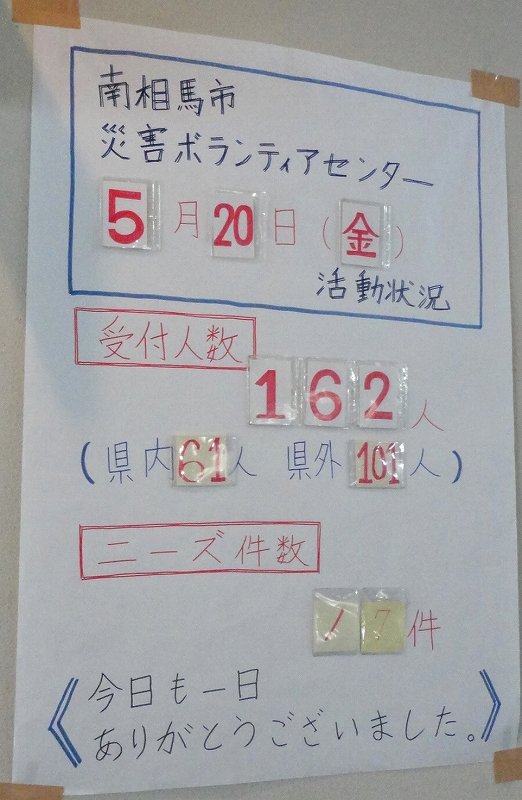 南相馬市
災害ボランティアセンター
5月20日(金)
活動状況
受付人数
162人
(県内61人 県外101人)
ニーズ件数
17件
《今日も一日
ありがとうございました。》